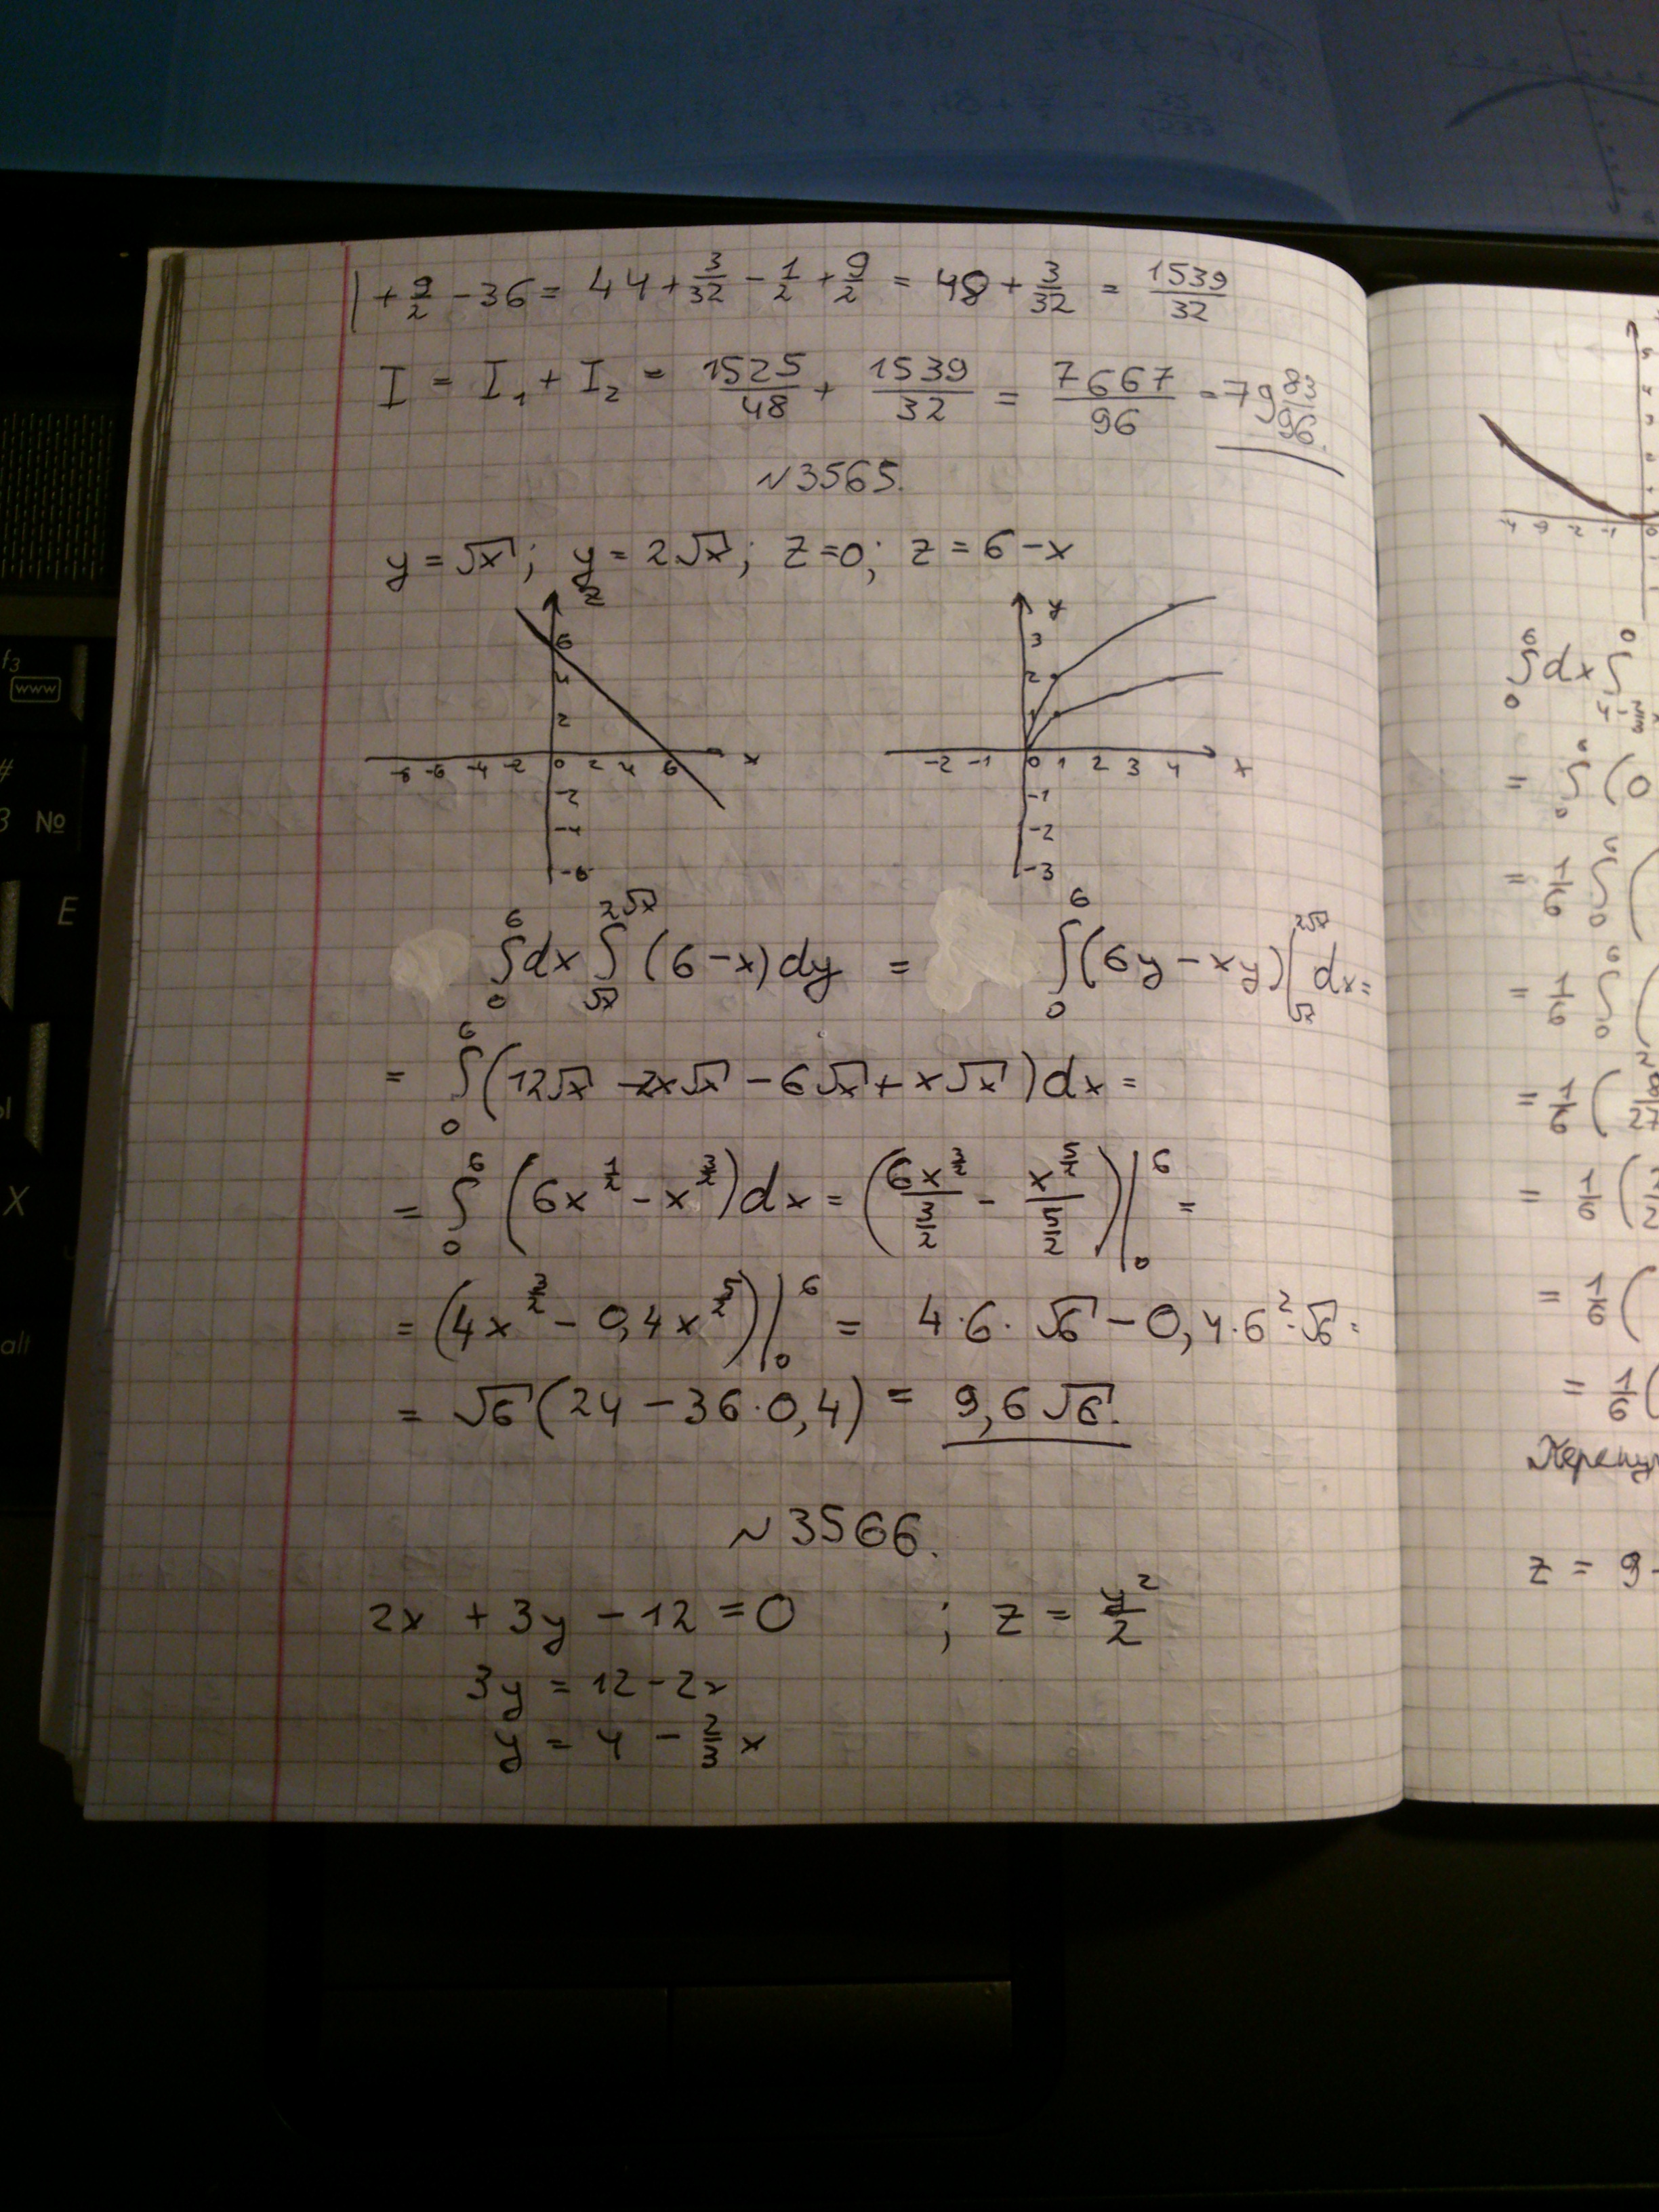 + 9/2 - 36 = 44 + 3/32 - 1/2 + 9/2 = 48 + 3/32 = 1539/32
I = I₁ + I₂ = 1525/48 + 1539/32 = 7667/96 = 79 83/96.
№3565.
y = √x; y = 2√x; z = 0; z = 6 - x
z
6
4
2
-8 -6 -4 -2 0 2 4 6 x
-2
-4
-6
y
3
2
1
-2 -1 0 1 2 3 4 x
-1
-2
-3
∫₀⁶ dx ∫_{√x}^{2√x} (6 - x) dy = ∫₀⁶ (6y - xy)|_{√x}^{2√x} dx =
= ∫₀⁶ (12√x - 2x√x - 6√x + x√x) dx =
= ∫₀⁶ (6x^{1/2} - x^{3/2}) dx = (6x^{3/2}/(3/2) - x^{5/2}/(5/2))|₀⁶ =
= (4x^{3/2} - 0,4x^{5/2})|₀⁶ = 4·6·√6 - 0,4·6²·√6 =
= √6(24 - 36·0,4) = 9,6√6.
№3566.
2x + 3y - 12 = 0 ; z = y²/2
3y = 12 - 2x
y = 4 - 2/3 x
∫₀⁶ dx ∫
= ∫₀⁶ (0
= 1/6 ∫₀⁶ (
= 1/6 ∫₀⁶ (
= 1/6 (
= 1/6 (
= 1/6 (
= 1/6 (
z = 9 -
f3
www
#
3 №
E
X
alt